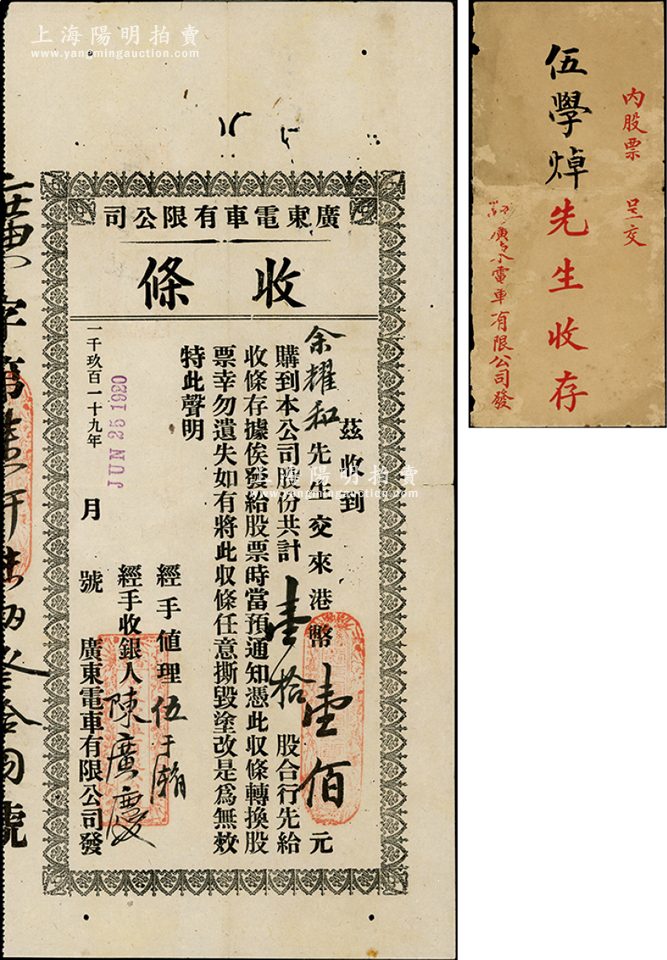 上海陽明拍賣
www.yangmingauction.com
廣東電車有限公司
收條
茲收到
余耀和先生交來港幣壹佰元
購到本公司股份共計壹拾股合行先給
收條存據俟發給股票時當預通知憑此收條轉換股
票幸勿遺失如有將此收條任意撕毀塗改是爲無效
特此聲明
經手値理伍于瀚
經手收銀人陳廣慶
一千玖百一十九年 月 號 廣東電車有限公司發
JUN 25 1920
上海陽明拍賣
www.yangmingauction.com
內股票 呈交
伍學焯先生收存
廣東電車有限公司發